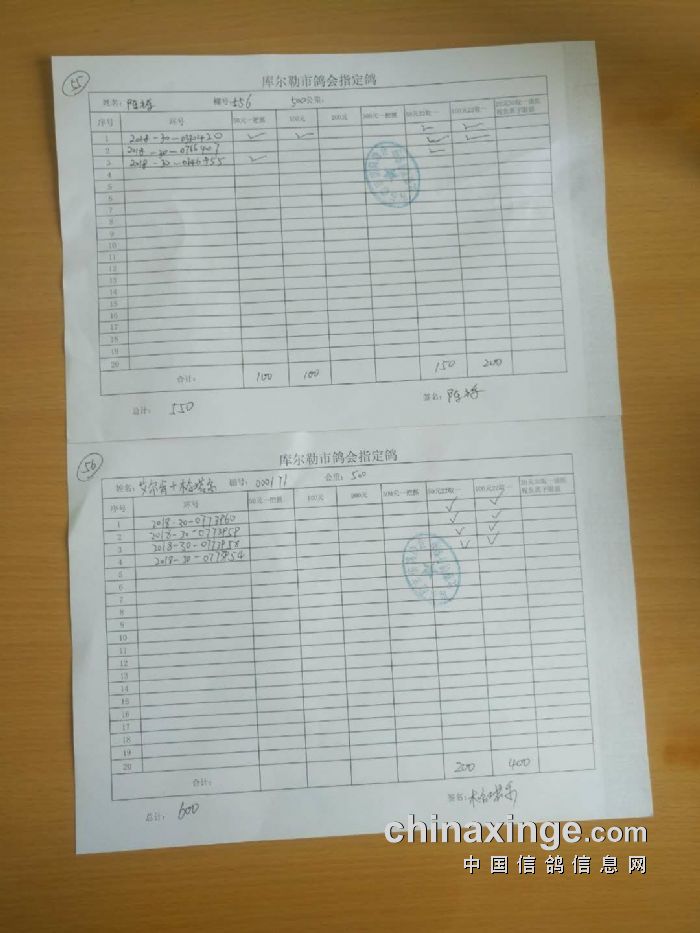 55
库尔勒市鸽会指定鸽
姓名: 棚号: 556 500公里:
序号 环号 50元一把抓 100元 200元 300元一把抓 50元22取一 100元22取一
1 2018-30- ✓ ✓ ✓ ✓
2 2018-30-0766407 ✓ ✓
3 2018-30- ✓ ✓
4
5
6
7
8
9
10
11
12
13
14
15
16
17
18
19
20
合计: 100 100 150 200
总计: 550 签名:
56
库尔勒市鸽会指定鸽
姓名: 棚号: 000171 公里: 500
序号 环号 50元一把抓 100元 200元 500元一把抓 50元22取一 100元22取一
1 2018-30-0773960 ✓ ✓
2 2018-30-0773959 ✓ ✓
3 2018-30- ✓ ✓
4 2018-30- ✓ ✓
5
6
7
8
9
10
11
12
13
14
15
16
17
18
19
20
合计: 200 400
总计: 600 签名:
chinaxinge.com
中国信鸽信息网